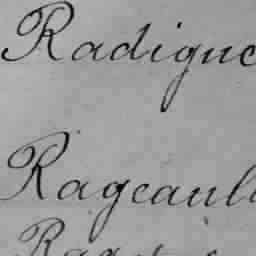 Radigue
Rageaul